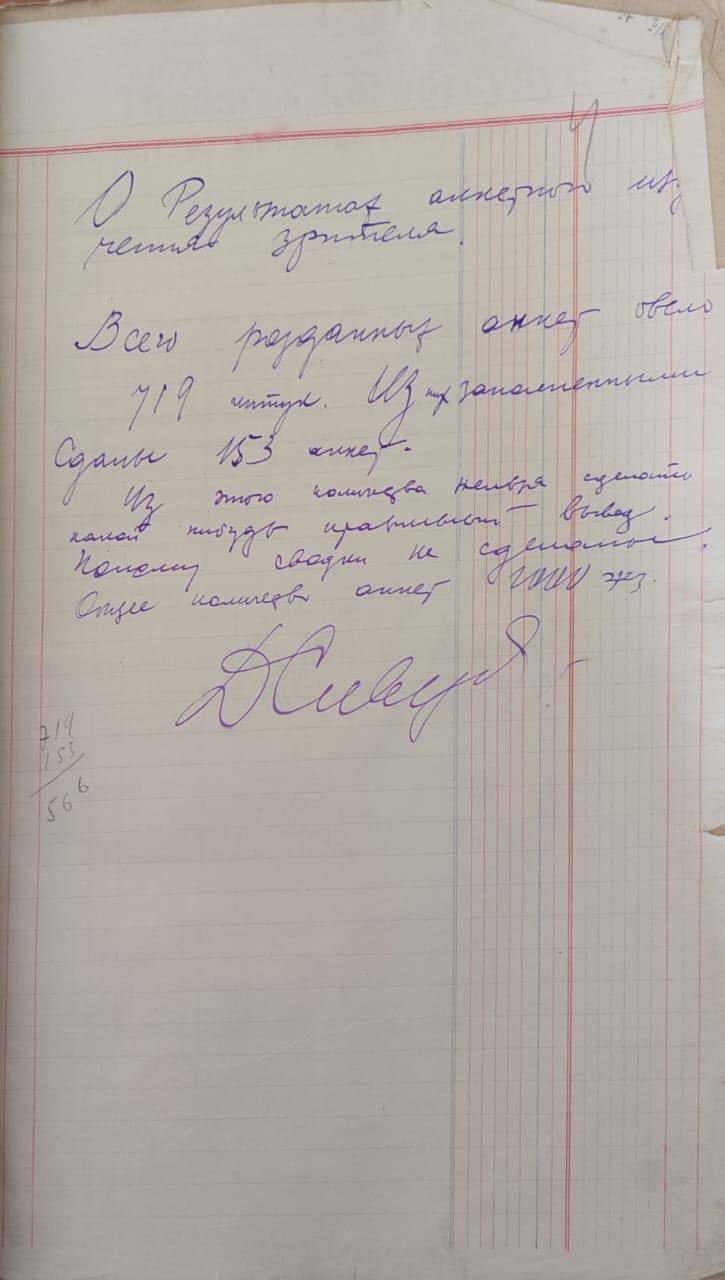 4
О Результатах анкетного изу
чения зрителя.
Всего розданных анкет было
719 штук. Из них заполненными
Сданы 153 анкет.
Из этого количества нельзя сделать
какой нибудь правильный вывод.
Поэтому сводки не сделаны.
Общее количество анкет 2000 экз.
719
153
566